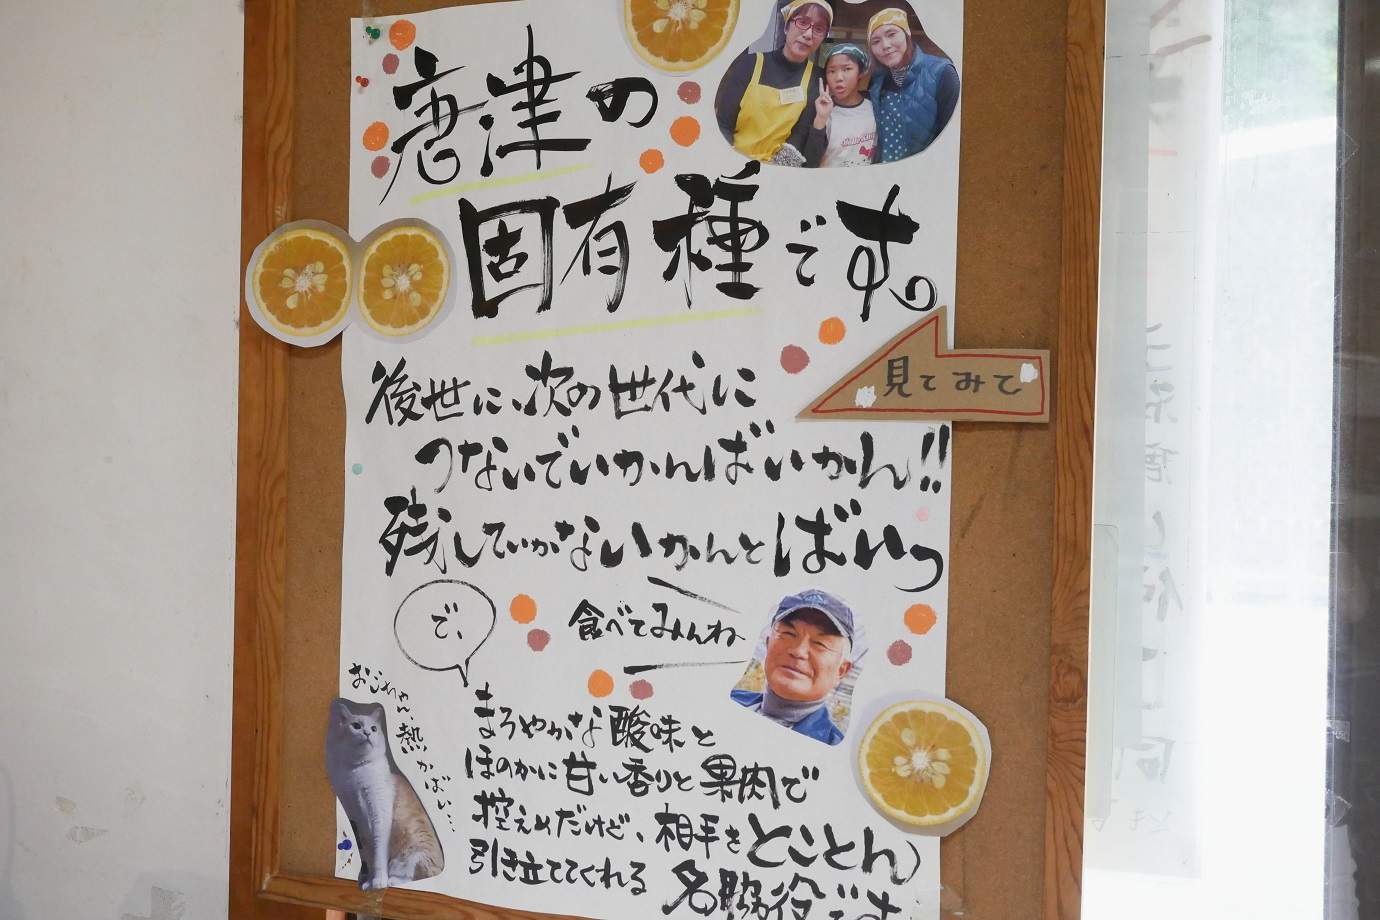 唐津の
固有種です。
見てみて
後世に、次の世代に
つないでいかんばいかん!!
残していかないかんとばいっ
で、
食べてみんね
まろやかな酸味と
ほのかに甘い香りと果肉で
控えめだけど、相手をとことん
引き立ててくれる
名脇役です
おこちゃん、熱かばい…